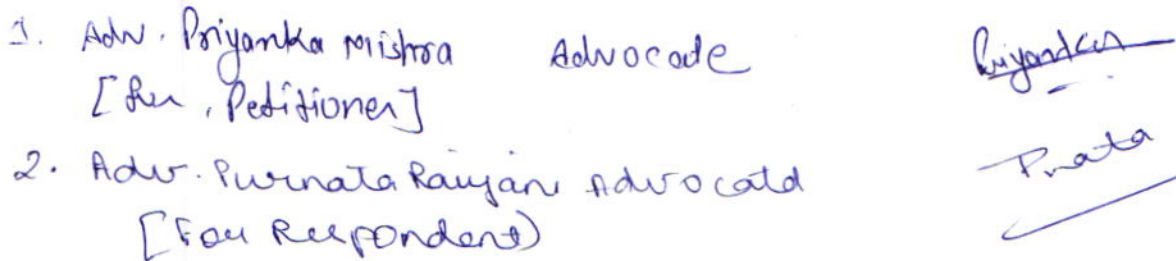 1. Adv. Priyanka Mishra Advocate Priyanka
[For, Petitioner]
2. Adv. Purnata Ranjan Advocate
[For Respondent)